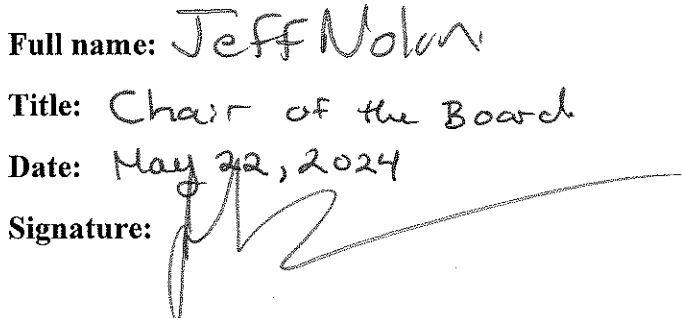 Full name: Jeff Nolan
Title: Chair of the Board
Date: May 22, 2024
Signature: